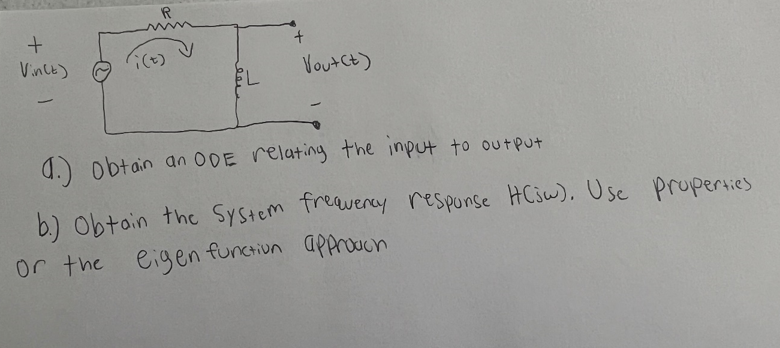 R
+
+
i(t)
Vin(t)
L
Vout(t)
-
-
a.) Obtain an ODE relating the input to output
b.) Obtain the System frequency response H(jw). Use properties
or the eigen function approach